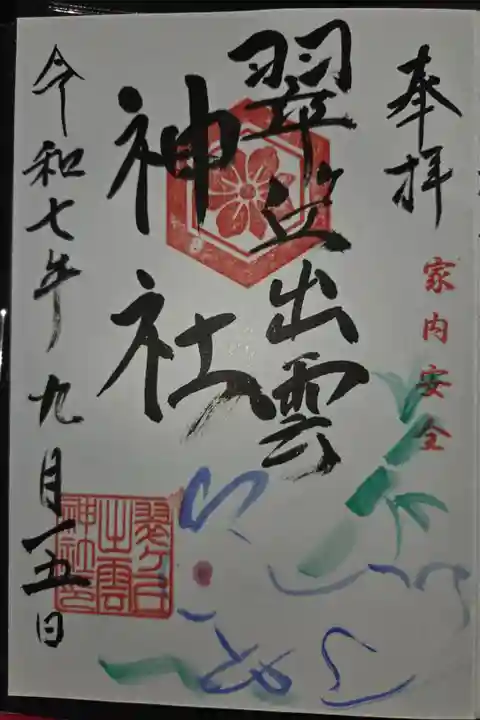 奉拝
家内安全
翠ヶ丘出雲
神社
令和七年九月一五日
翠ヶ丘
出雲
神社印